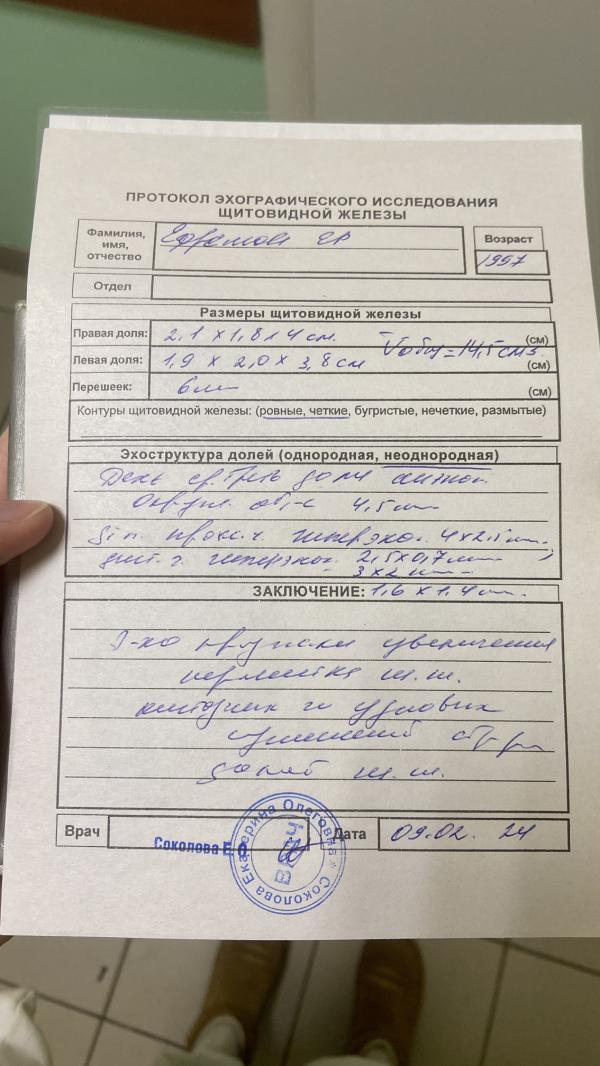 ПРОТОКОЛ ЭХОГРАФИЧЕСКОГО ИССЛЕДОВАНИЯ
ЩИТОВИДНОЙ ЖЕЛЕЗЫ
Фамилия,
имя,
отчество
Возраст
1997
Отдел
Размеры щитовидной железы
Правая доля: 2,1 х 1,8 х 4 см. (см)
Vобщ = 14,5 см3
Левая доля: 1,9 х 2,0 х 3,8 см (см)
Перешеек: 6 мм (см)
Контуры щитовидной железы: (ровные, четкие, бугристые, нечеткие, размытые)
Эхоструктура долей (однородная, неоднородная)
ср. треть доли
4,5 мм
гиперэхог. 4х2,5 мм.
гиперэхог. 2,5х0,7 мм
3х2 мм
ЗАКЛЮЧЕНИЕ: 1,6 х 1,4 мм.
Эхо признаки увеличения
перешейка щ.ж.
кистозных и узловых
изменений стр-ры
долей щ.ж.
Врач
Соколова Е.О.
Соколова Екатерина Олеговна
ВРАЧ
Дата 09.02. 24